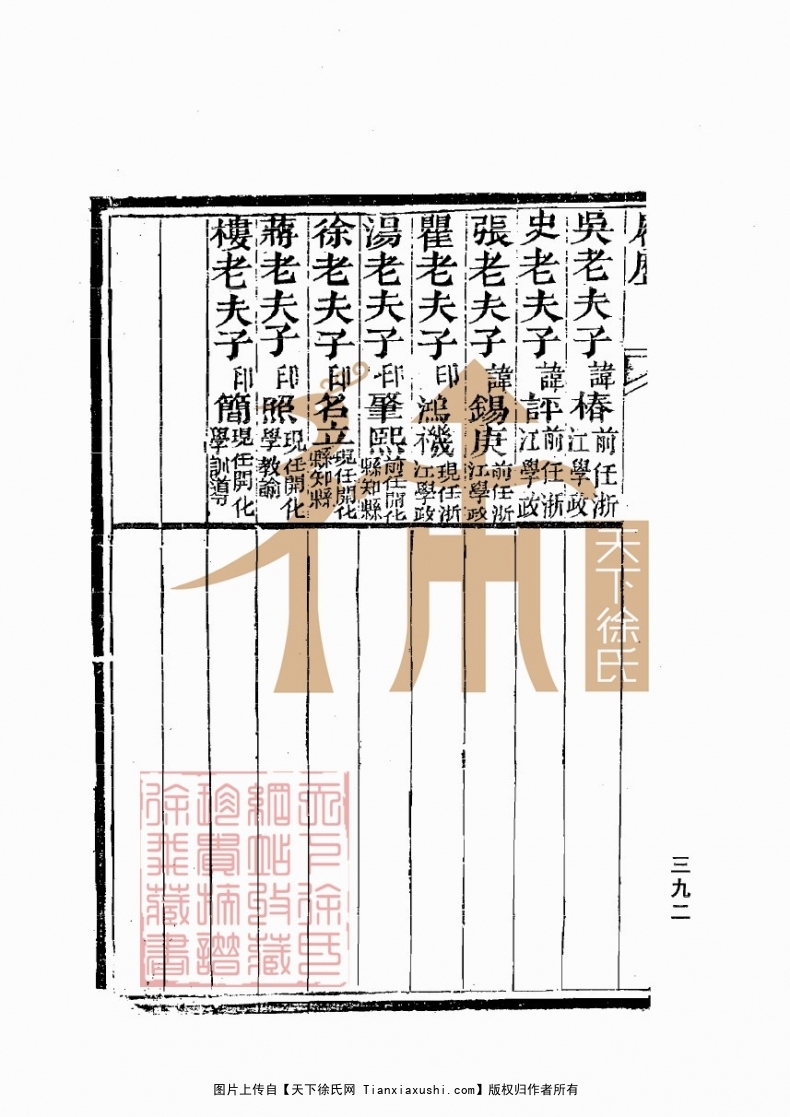 履歷
吳老夫子 諱椿 前任浙江學政
史老夫子 諱評 前任浙江學政
張老夫子 諱錫庚 前任浙江學政
瞿老夫子 印鴻禨 現任浙江學政
湯老夫子 印肇熙 前任開化縣知縣
徐老夫子 印名立 現任開化縣知縣
蔣老夫子 印照 現任開化學教諭
樓老夫子 印簡 現任開化學訓導
三九二
天下徐氏
天下徐氏
網帖收藏
珍貴摘譜
徐飛藏書
图片上传自【天下徐氏网 Tianxiaxushi.com】版权归作者所有